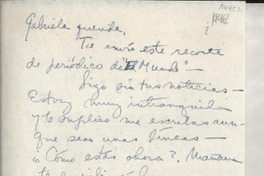 Gabriela querida,
Te envío este recorte
de periódico de "El Mundo" —
Sigo sin tus noticias —
Estoy muy intranquila
y te suplico me escribas aun-
que sean unas líneas —
¿Cómo estás ahora? Mañana